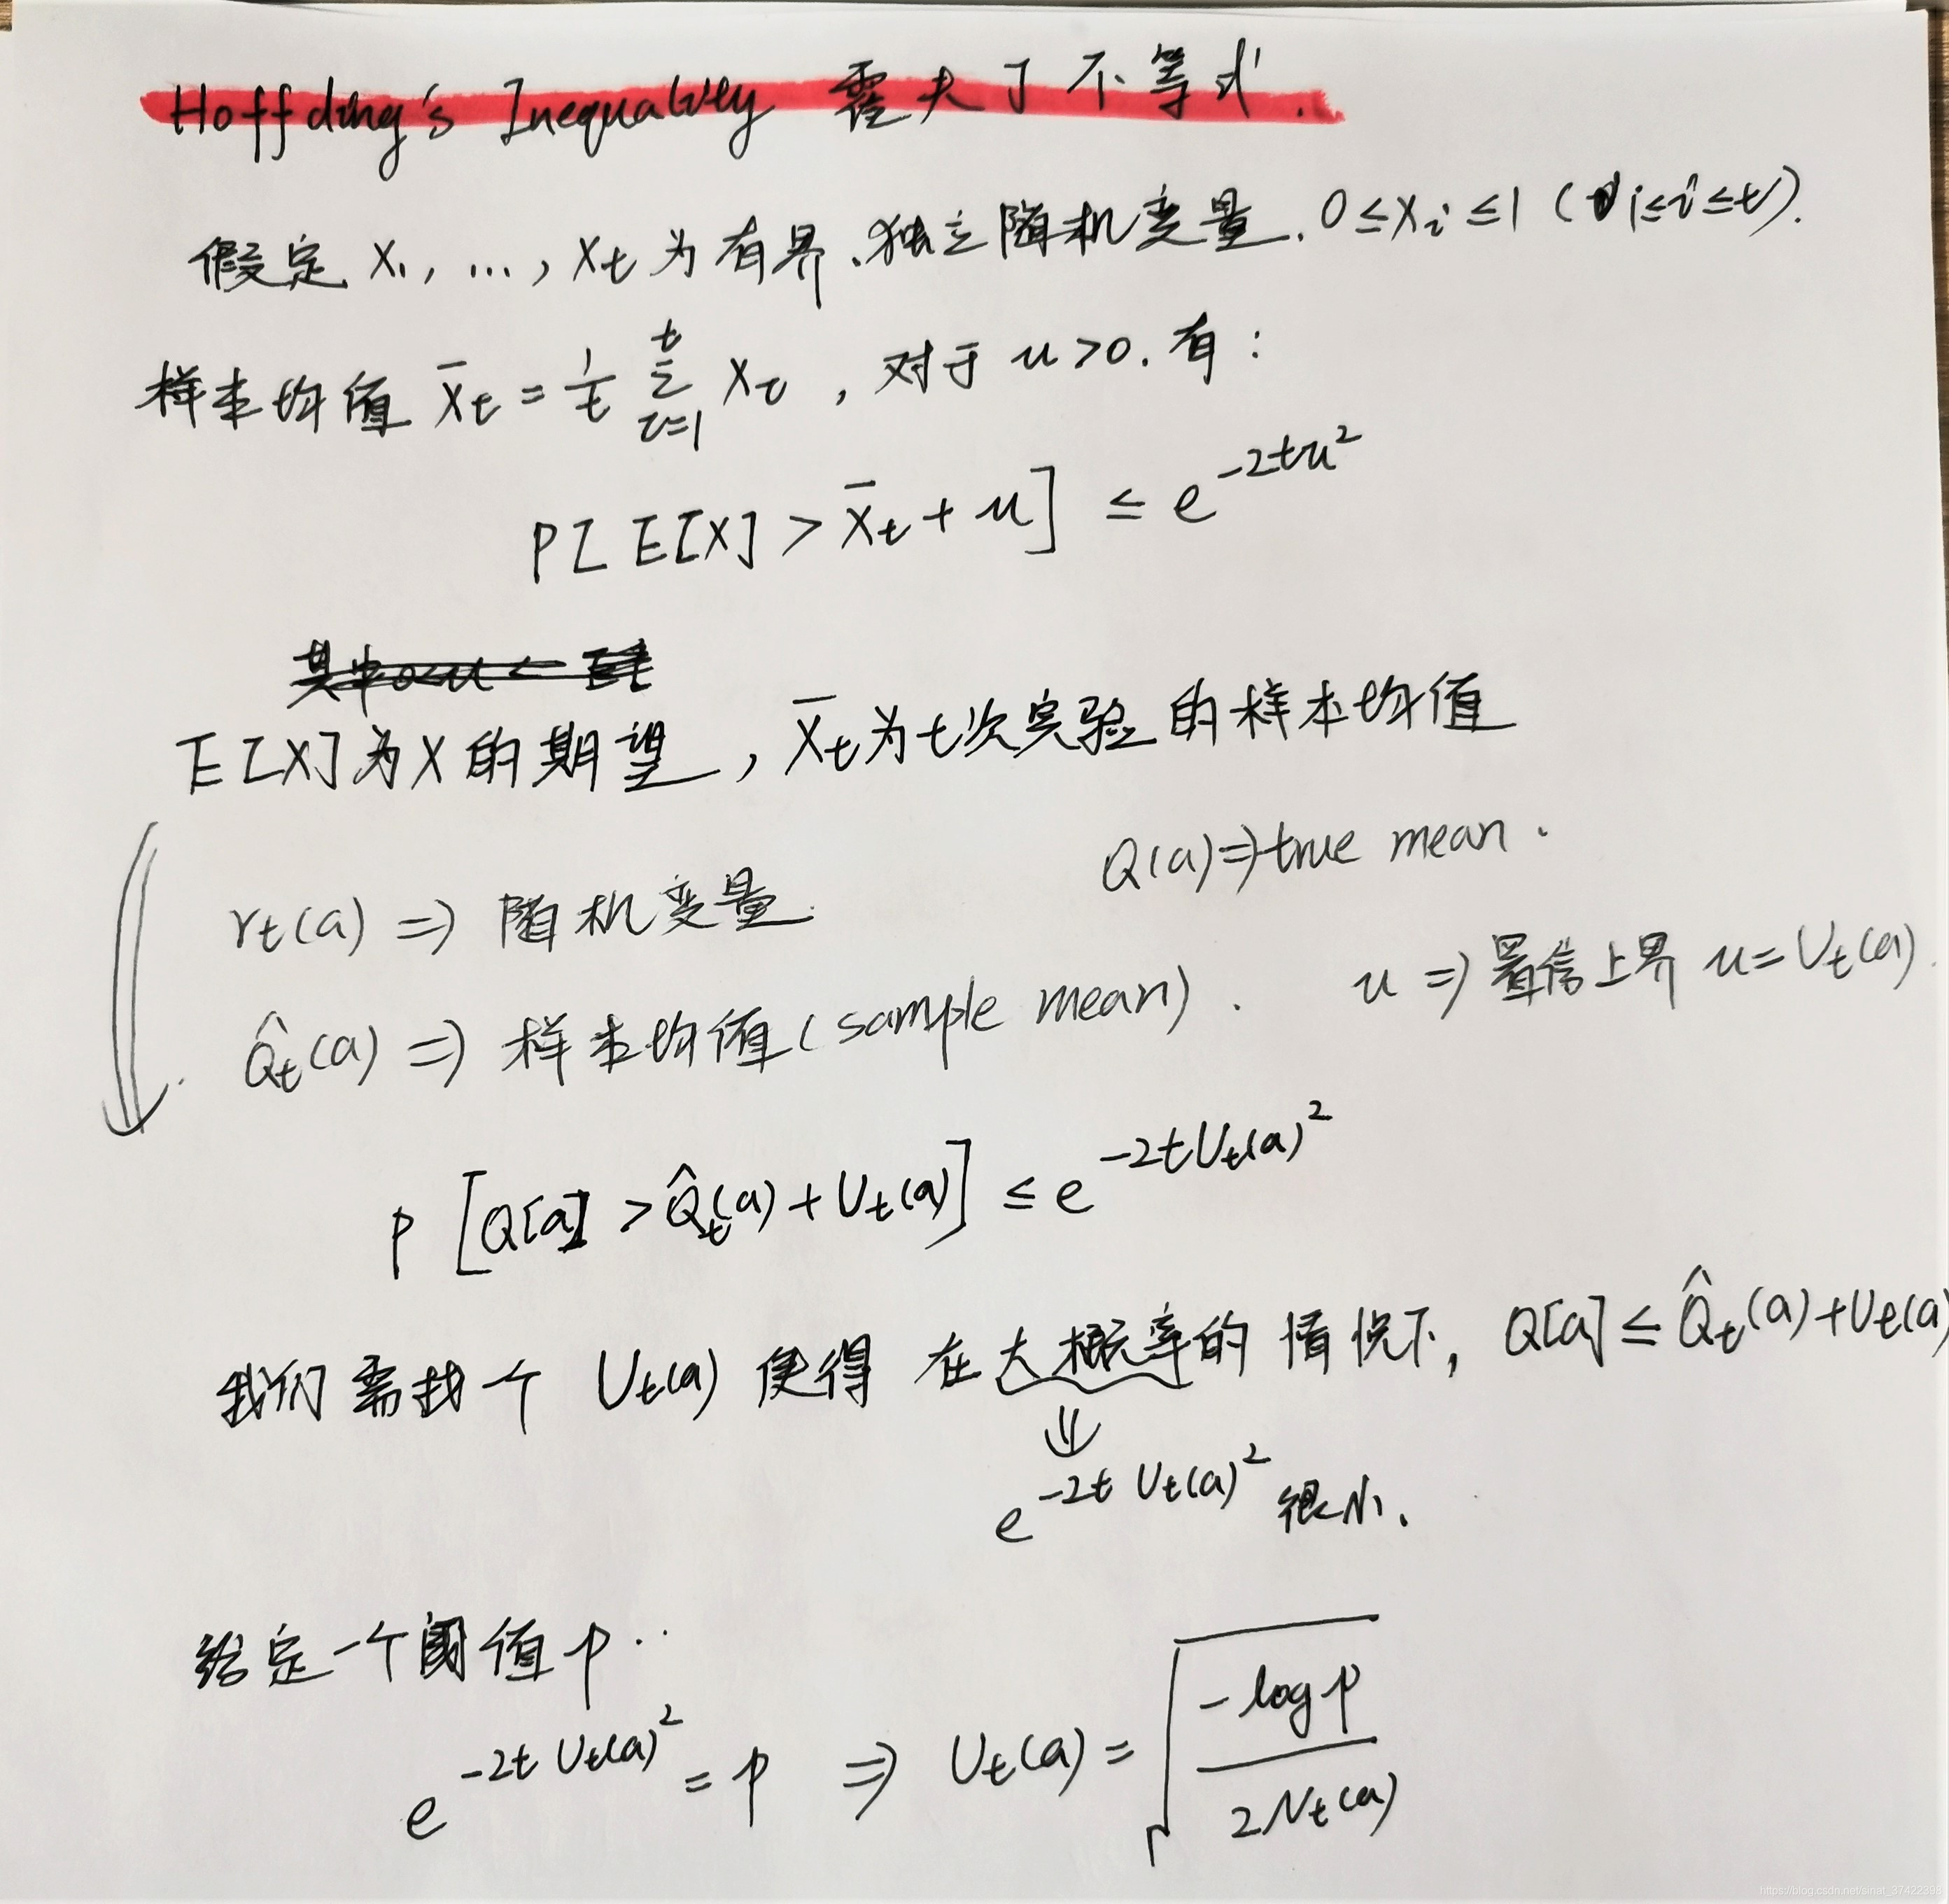 Hoffding's Inequality 霍夫丁不等式.
假定 X₁, ..., Xₜ 为有界、独立随机变量, 0≤Xᵢ≤1 (1≤i≤t).
样本均值 X̄ₜ = 1/t Σ_{τ=1}^{t} X_τ , 对于 u>0. 有:
P[ E[X] > X̄ₜ + u ] ≤ e^{-2tu²}
E[X]为X的期望, X̄ₜ为t次实验的样本均值
Q(a)⇒true mean.
rₜ(a) ⇒ 随机变量.
u ⇒ 置信上界 u=Uₜ(a).
Q̂ₜ(a) ⇒ 样本均值(sample mean).
P [Q[a] > Q̂ₜ(a) + Uₜ(a)] ≤ e^{-2tUₜ(a)²}
我们需找个 Uₜ(a) 使得 在大概率的情况下, Q[a] ≤ Q̂ₜ(a)+Uₜ(a
⇓
e^{-2t Uₜ(a)²} 很小.
给定一个阈值 p:
e^{-2t Uₜ(a)²} = p ⇒ Uₜ(a) = √(-log p / 2Nₜ(a))